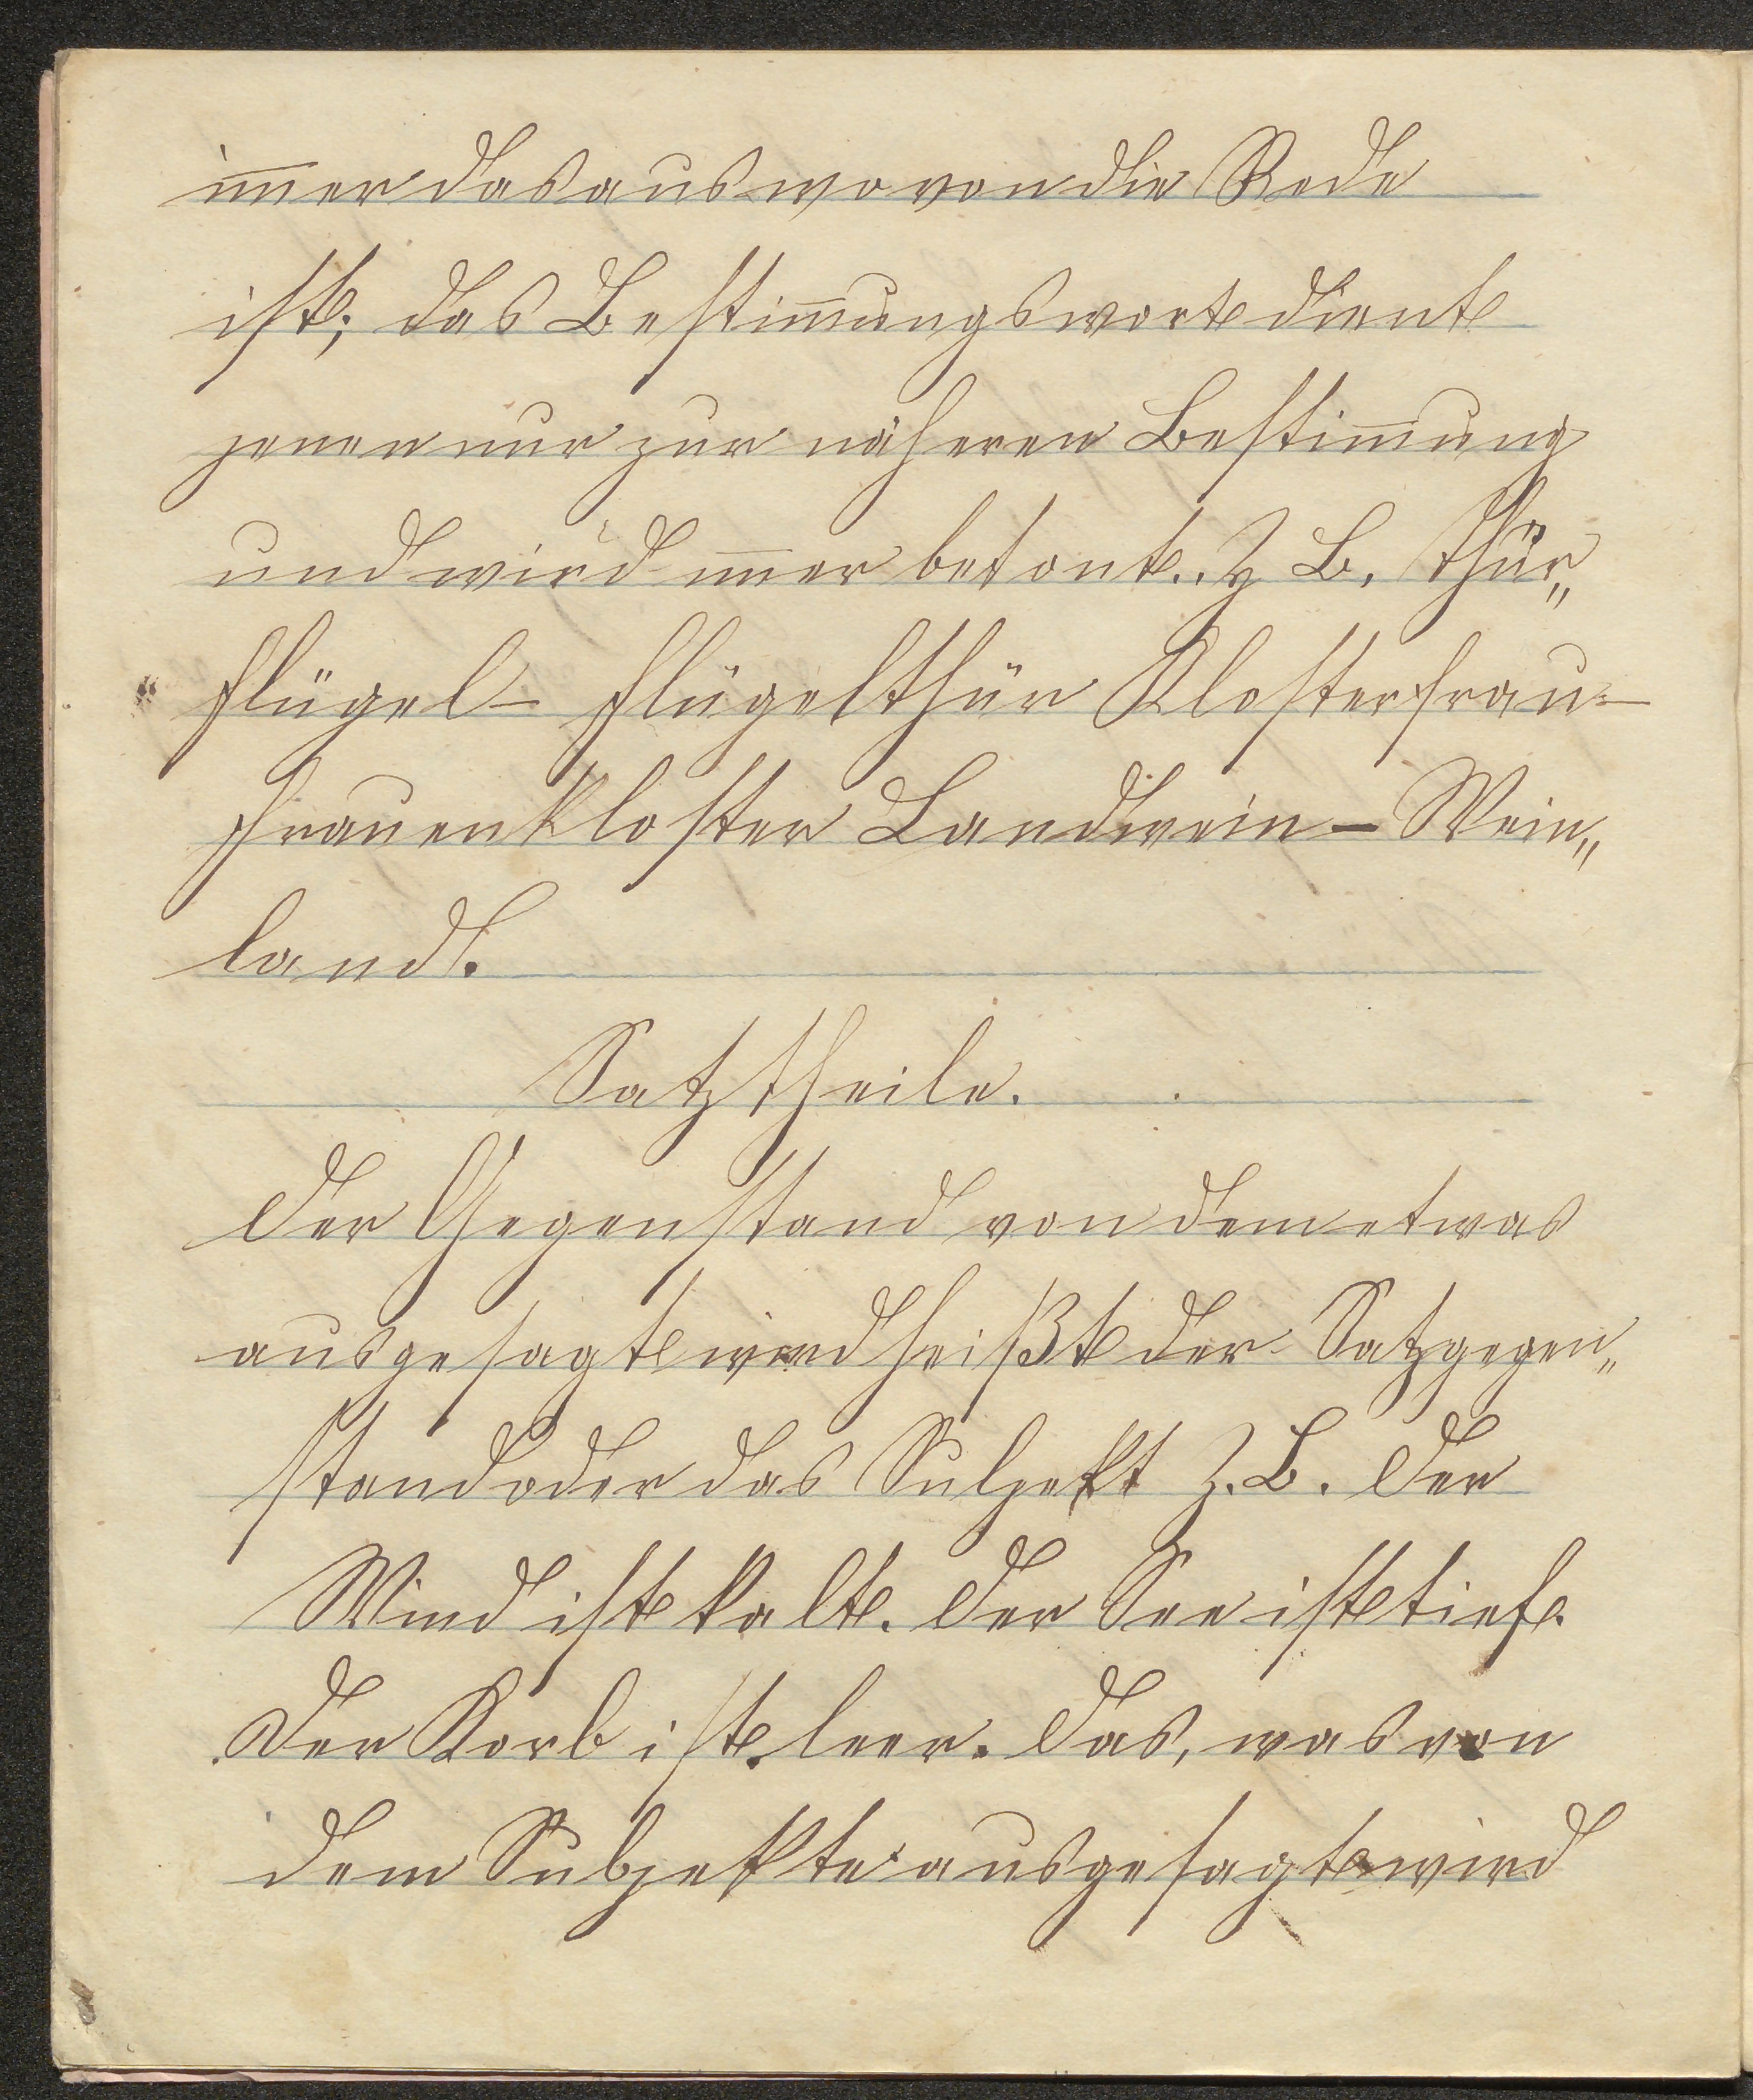 im̅er das aus wovon die Rede
ist; das Bestim̅ungswort dient
jenen nur zur näheren Bestim̅ung
und wird im̅er betont. Z B. Thür„
„flügel – Flügelthür Klosterfrau –
Frauenkloster Landwein – Wein„
land.
Satztheile.
Der Gegenstand von dem etwas
ausgesagt wird heißt der Satzgegen„
stand oder das Subjekt z. B. Der
Wind ist kalt. Der See ist tief.
Der Korb ist leer. Das, was von
dem Subjekte ausgesagt wird